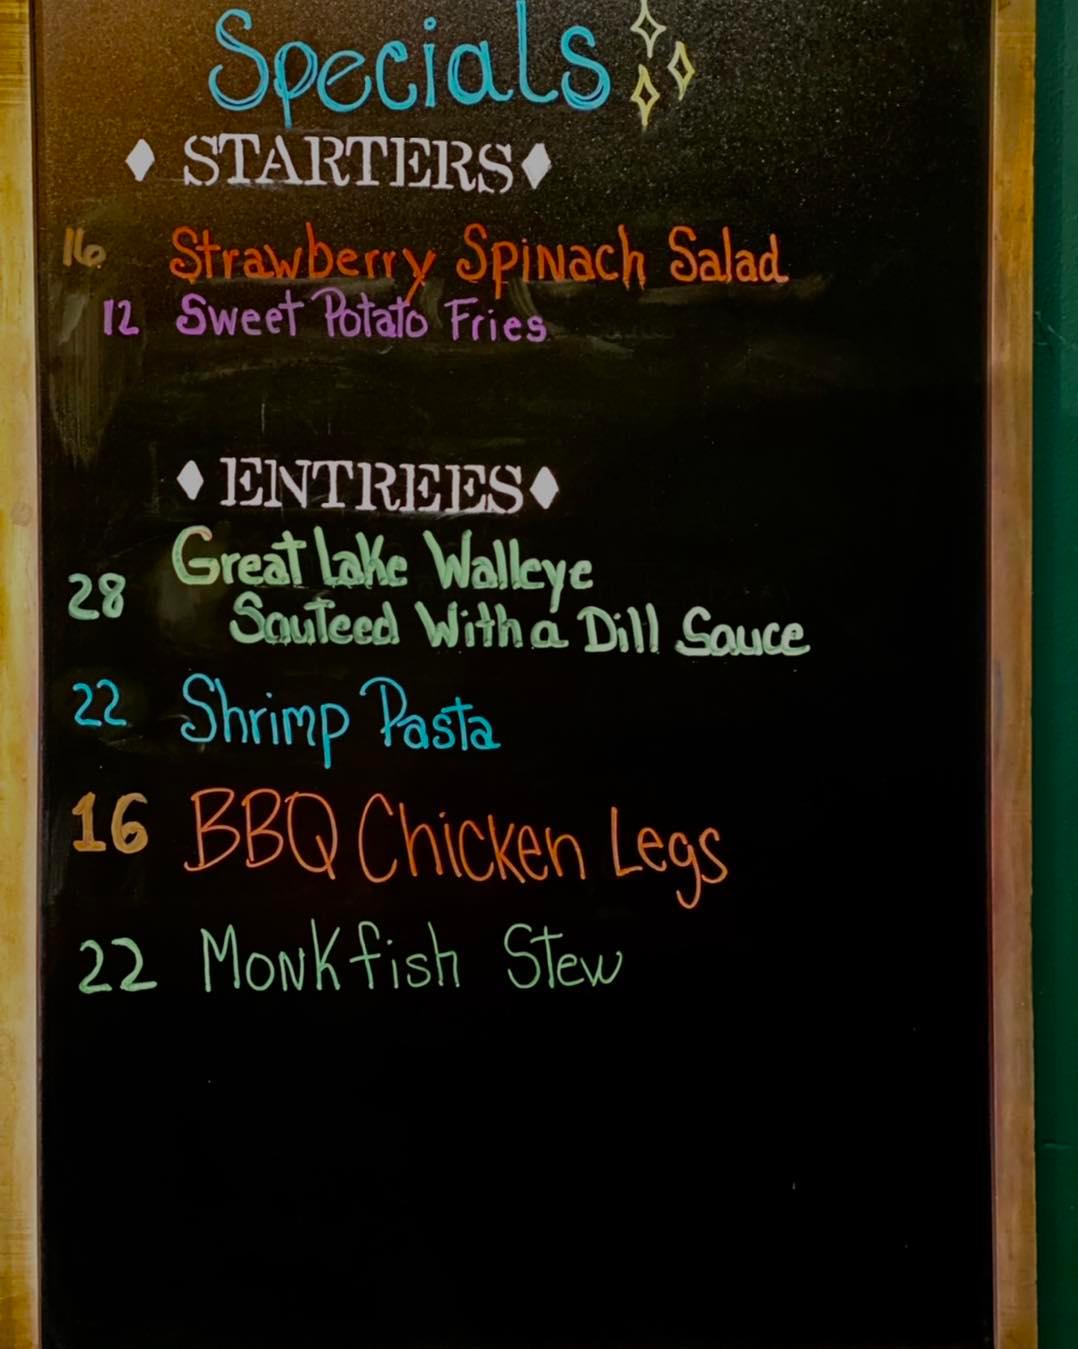 Specials
STARTERS
16 Strawberry Spinach Salad
12 Sweet Potato Fries
ENTREES
28 Great Lake Walleye
Sauteed With a Dill Sauce
22 Shrimp Pasta
16 BBQ Chicken Legs
22 Monkfish Stew